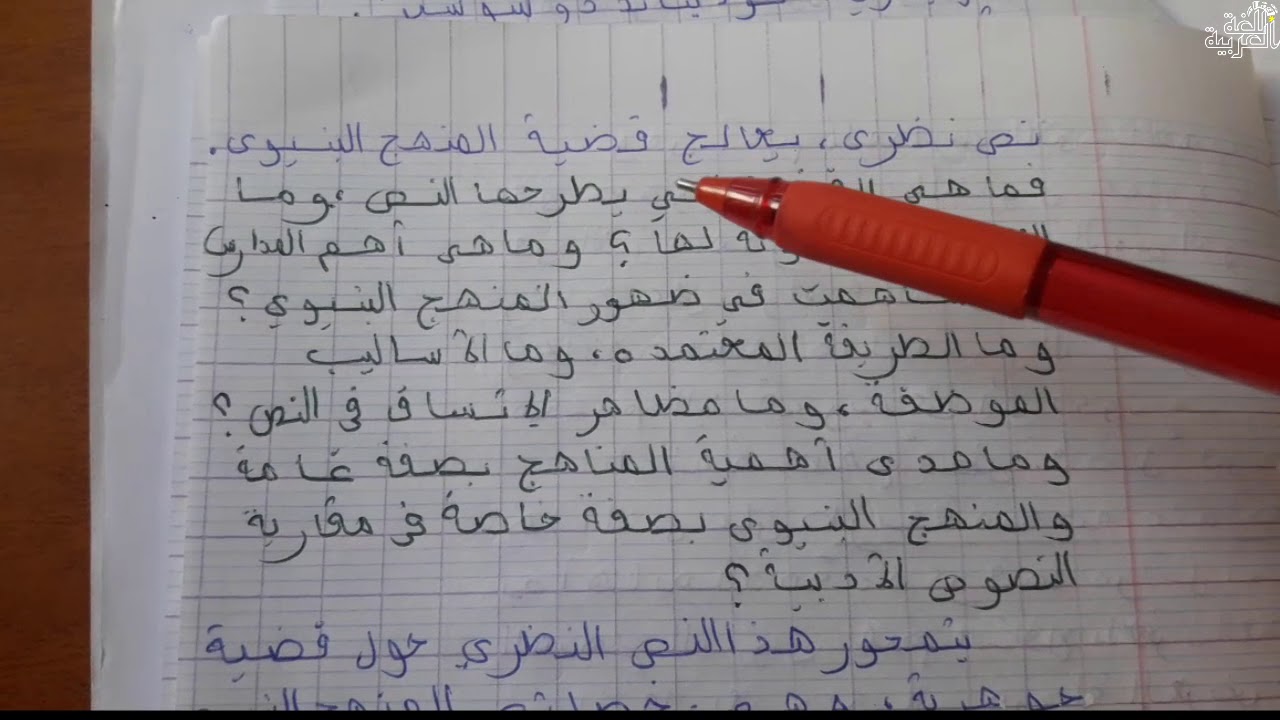 اللغة العربية
نص نظري، يعالج قضية المنهج البنيوي.
فما هي يطرحها النص، وما
لها؟ وما هي أهم المدارس
في ضهور المنهج البنيوي؟
وما الطريقة المعتمدة، وما الأساليب
الموضفة، وما مضاهر الاتساق في النص؟
وما مدى أهمية المناهج بصفة عامة
والمنهج البنيوي بصفة خاصة في مقاربة
النصوص الأدبية؟
يتمحور هذا النص النظري حول قضية